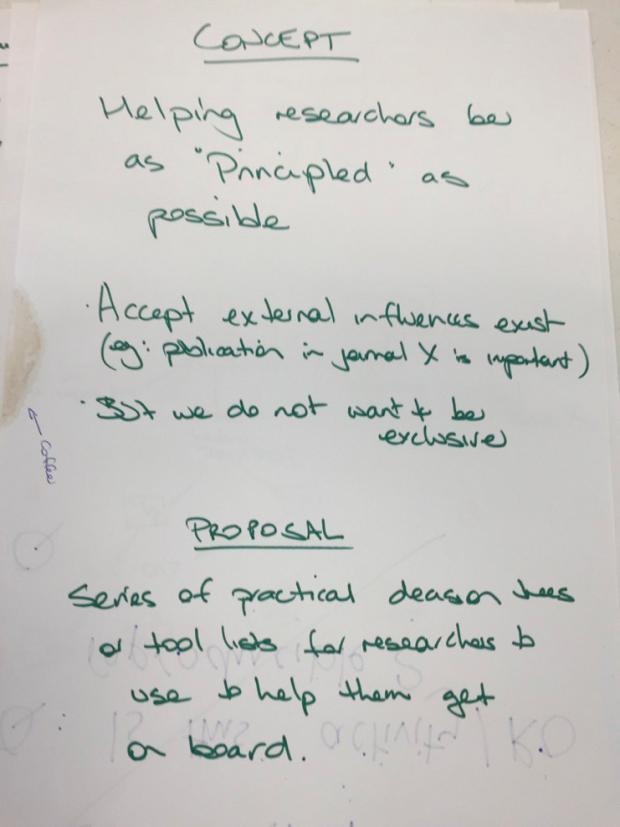 CONCEPT
Helping researchers be
as "Principled" as
possible
· Accept external influences exist
(eg: publication in journal X is important)
· But we do not want to be
exclusive
← Coffee
PROPOSAL
Series of practical decision trees
or tool lists for researchers to
use to help them get
on board.